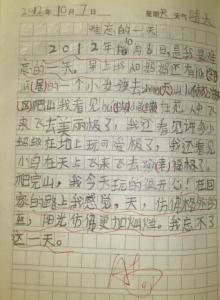 2012年10月7日 星期天 天气晴天
难忘的一天
2012年10月6日是我最难
忘的一天。早上妈妈爸爸还有
的一个小女孩去
爬山我看见 在花丛中
来飞去美丽极了，我还看见许多小
蚂蚁在地上玩可爱极了，我还看见
小鸟在天上飞来飞去 极了。
爬完山，我今天玩的很开心！在回
家的路上我感觉。天，仿佛格外的
蓝，阳光仿佛更加灿烂。我忘不了
这一天。